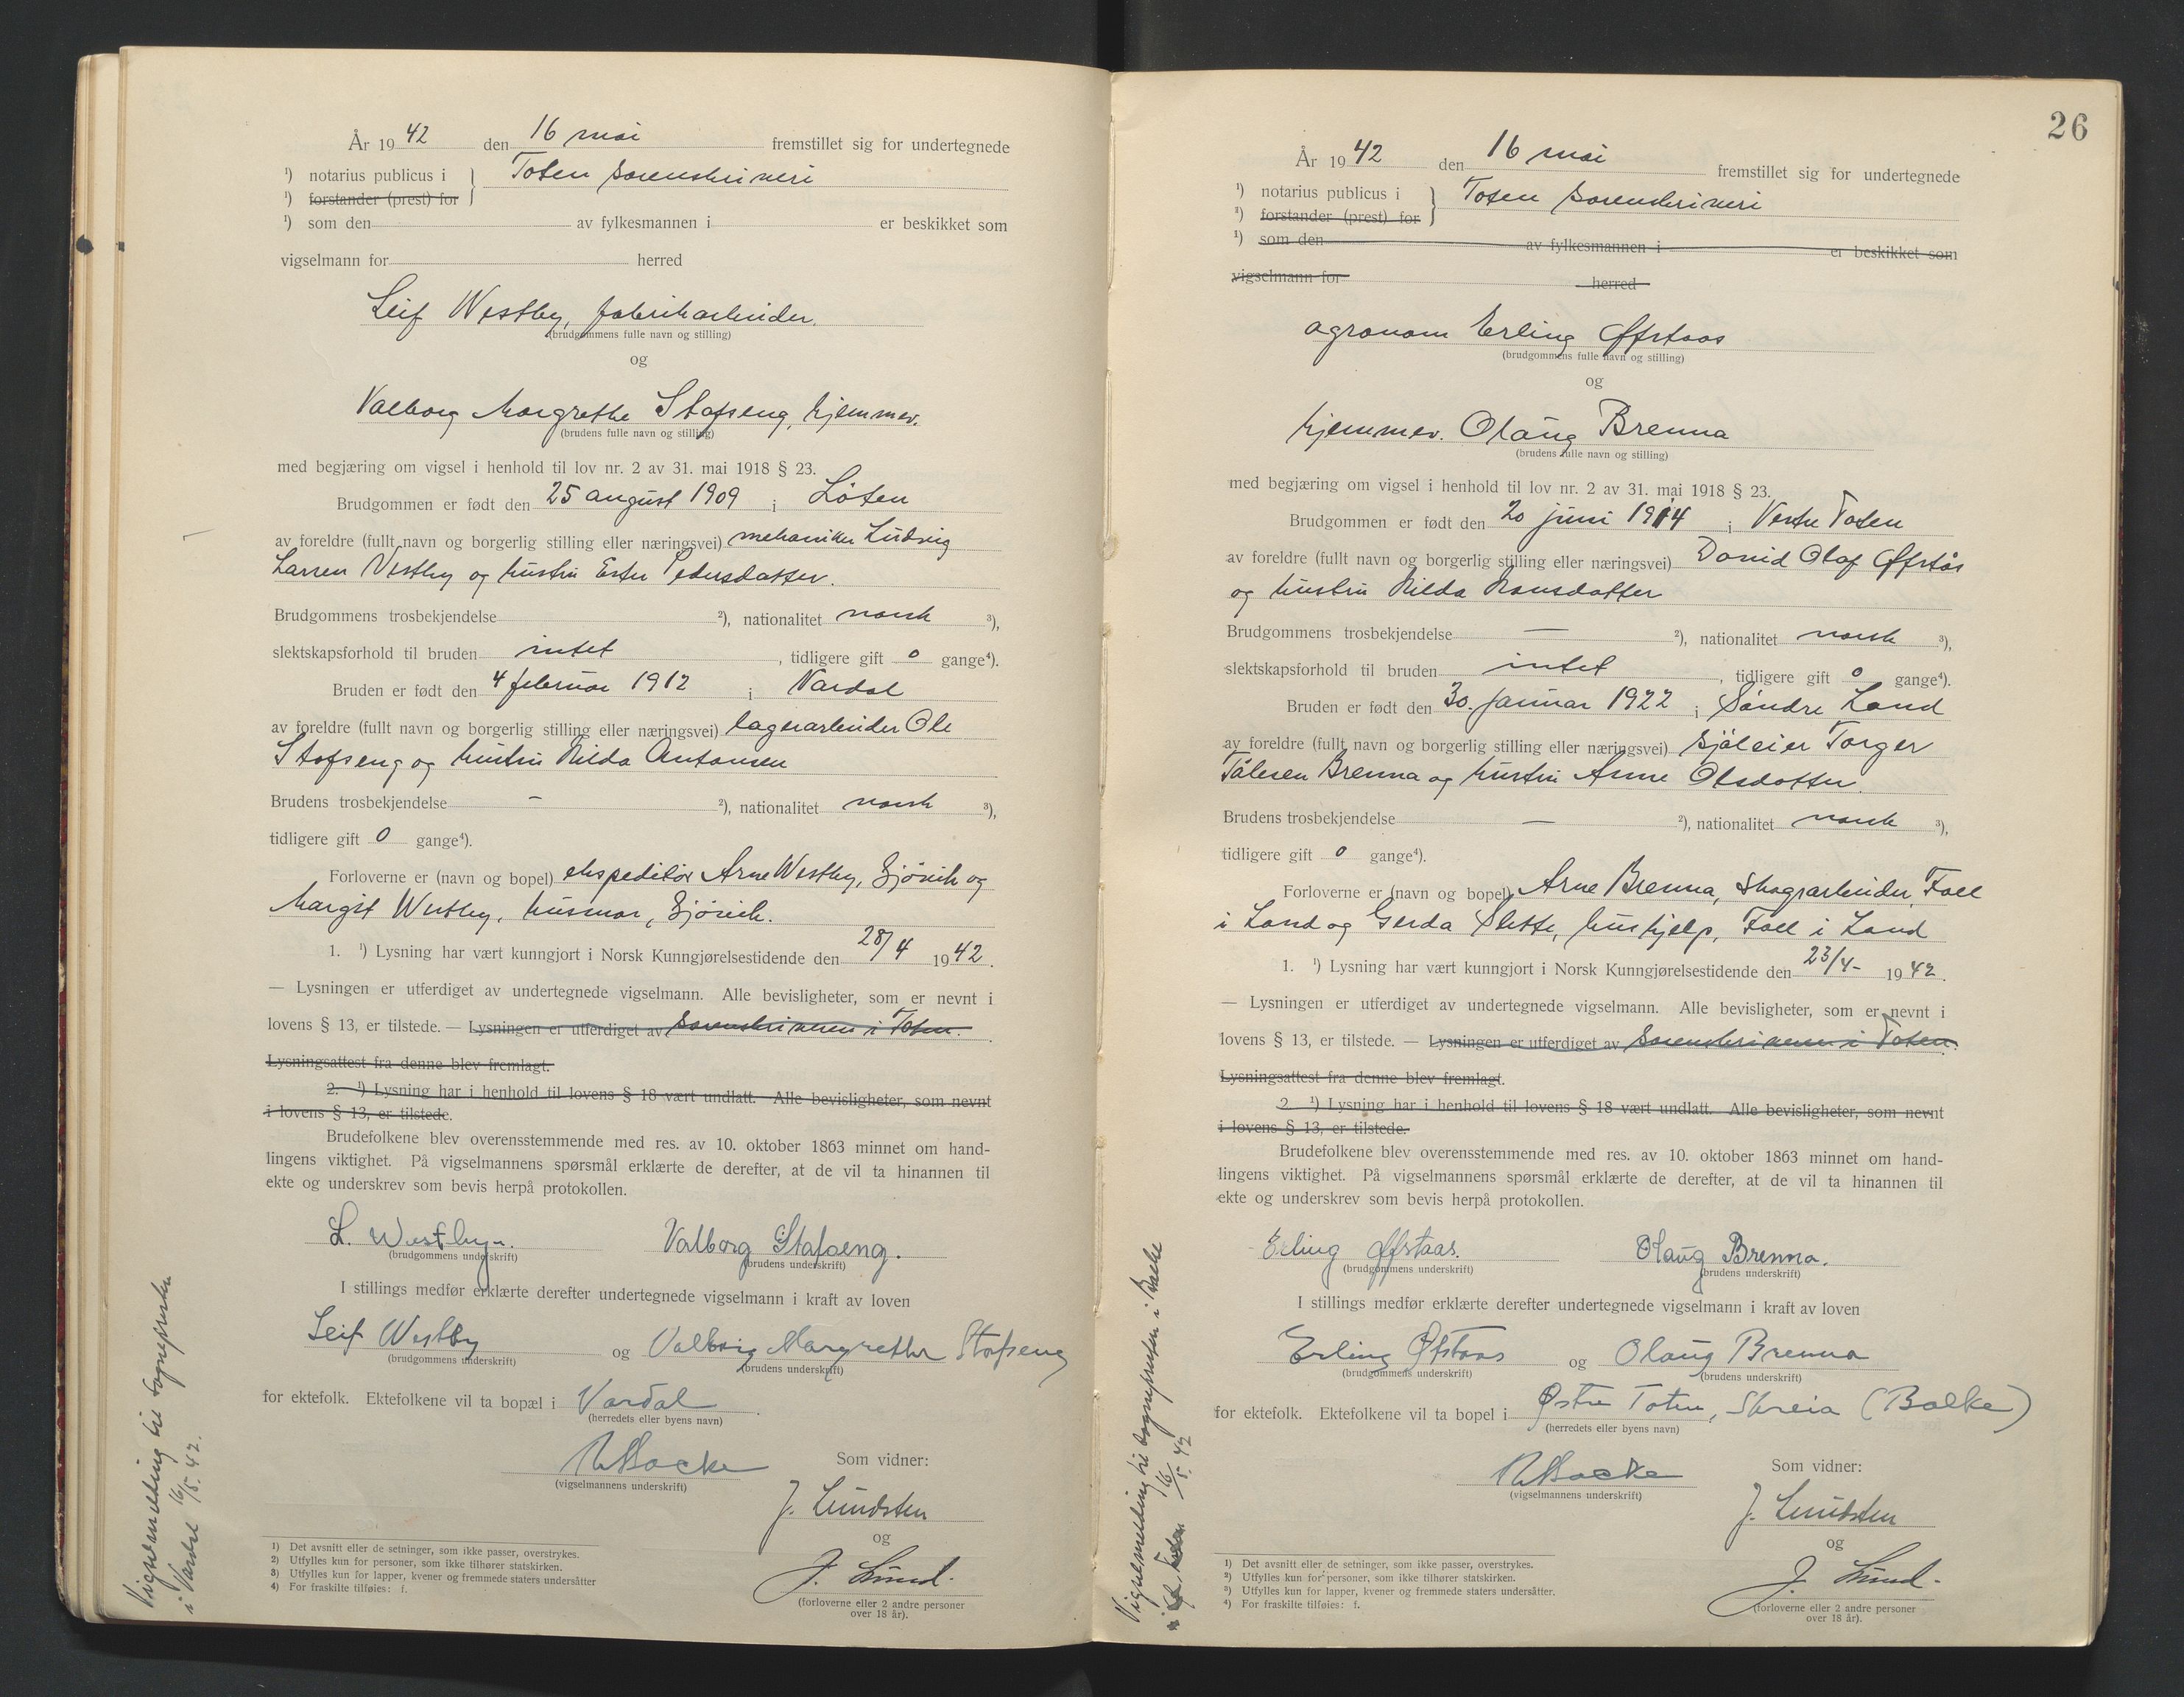 År 1942 den 16 mai fremstillet sig for undertegnede
¹) notarius publicus i } Toten sorenskriveri
¹) forstander (prest) for
¹) som den av fylkesmannen i er beskikket som
vigselmann for herred
Leif Westby, fabrikarbeider.
(brudgommens fulle navn og stilling)
og
Valborg Margrethe Stafseng, hjemmev.
(brudens fulle navn og stilling)
med begjæring om vigsel i henhold til lov nr. 2 av 31. mai 1918 § 23.
Brudgommen er født den 25 august 1909 i Löten
av foreldre (fullt navn og borgerlig stilling eller næringsvei) mekaniker Ludvig
Larsen Vestby og hustru Ester Pedersdatter.
Brudgommens trosbekjendelse ²), nationalitet norsk ³),
slektskapsforhold til bruden intet, tidligere gift 0 gange⁴).
Bruden er født den 4 februar 1912 i Vardal
av foreldre (fullt navn og borgerlig stilling eller næringsvei) lagerarbeider Ole
Stafseng og hustru Hilda Antonsen
Brudens trosbekjendelse - ²), nationalitet norsk ³),
tidligere gift 0 gange⁴).
Forloverne er (navn og bopel) ekspeditör Arne Westby, Gjövik og
Margit Westby, husmor, Gjövik.
1. ¹) Lysning har vært kunngjort i Norsk Kunngjørelsestidende den 28/4 1942.
— Lysningen er utferdiget av undertegnede vigselmann. Alle bevisligheter, som er nevnt i
lovens § 13, er tilstede. — Lysningen er utferdiget av sorenskriveren i Toten.
Lysningsattest fra denne blev fremlagt.
2. ¹) Lysning har i henhold til lovens § 18 vært undlatt. Alle bevisligheter, som nevnt
i lovens § 13, er tilstede.
Brudefolkene blev overensstemmende med res. av 10. oktober 1863 minnet om hand-
lingens viktighet. På vigselmannens spørsmål erklærte de derefter, at de vil ta hinannen til
ekte og underskrev som bevis herpå protokollen.
L. Westbye. Valborg Stafseng.
(brudgommens underskrift) (brudens underskrift)
I stillings medfør erklærte derefter undertegnede vigselmann i kraft av loven
Leif Westby og Valborg Margrethe Stafseng
(brudgommens underskrift) (brudens underskrift)
for ektefolk. Ektefolkene vil ta bopæl i Vardal.
(herredets eller byens navn)
Som vidner:
(vigselmannens underskrift)
J. Lundsten
og
J. Lund.
(forloverne eller 2 andre personer
over 18 år).
1) Det avsnitt eller de setninger, som ikke passer, overstrykes.
2) Utfylles kun for personer, som ikke tilhører statskirken.
3) Utfylles kun for lapper, kvener og fremmede staters undersåtter
4) For fraskilte tilføies: f.
Vigselmelding til sognepresten
i Vardal 16/5. 42.
26
År 1942 den 16 mai fremstillet sig for undertegnede
¹) notarius publicus i } Toten sorenskriveri
²) forstander (prest) for
¹) som den av fylkesmannen i er beskikket som
vigselmann for herred
agronom Erling Øfstaas
(brudgommens fulle navn og stilling)
og
hjemmev. Olaug Brenna
(brudens fulle navn og stilling)
med begjæring om vigsel i henhold til lov nr. 2 av 31. mai 1918 § 23.
Brudgommen er født den 20 juni 1914 i Vestre Toten
av foreldre (fullt navn og borgerlig stilling eller næringsvei) David Olaf Øfstås
og hustru Hilda Hansdatter
Brudgommens trosbekjendelse — ²), nationalitet norsk ³),
slektskapsforhold til bruden intet, tidligere gift 0 gange⁴).
Bruden er født den 30. januar 1922 i Söndre Land
av foreldre (fullt navn og borgerlig stilling eller næringsvei) sjöleier Torger
Brenna og hustru Anne Olsdatter.
Brudens trosbekjendelse — ²), nationalitet norsk ³),
tidligere gift 0 gange⁴).
Forloverne er (navn og bopel) Arne Brenna, skogsarbeider, Fall
i Land og Gerda Slette, hushjelp, Fall i Land
1. ¹) Lysning har vært kunngjort i Norsk Kunngjørelsestidende den 23/4- 1942.
— Lysningen er utferdiget av undertegnede vigselmann. Alle bevisligheter, som er nevnt i
lovens § 13, er tilstede. — Lysningen er utferdiget av sorenskriveren i Toten.
Lysningsattest fra denne blev fremlagt.
2 ¹) Lysning har i henhold til lovens § 18 vært undlatt. Alle bevisligheter, som nevnt
i lovens § 13, er tilstede.
Brudefolkene blev overensstemmende med res. av 10. oktober 1863 minnet om hand-
lingens viktighet. På vigselmannens spørsmål erklærte de derefter, at de vil ta hinannen til
ekte og underskrev som bevis herpå protokollen.
Erling Øfstaas. Olaug Brenna.
(brudgommens underskrift) (brudens underskrift)
I stillings medfør erklærte derefter undertegnede vigselmann i kraft av loven
Erling Øfstaas og Olaug Brenna
(brudgommens underskrift) (brudens underskrift)
for ektefolk. Ektefolkene vil ta bopel i Østre Toten, Skreia (Balke)
(herredets eller byens navn)
Som vidner:
(vigselmannens underskrift)
J. Lundsten
og
J. Lund.
(forloverne eller 2 andre personer
over 18 år).
¹) Det avsnitt eller de setninger, som ikke passer, overstrykes.
²) Utfylles kun for personer, som ikke tilhører statskirken.
³) Utfylles kun for lapper, kvener og fremmede staters undersåtter.
⁴) For fraskilte tilføies: f.
Vigselmelding til sognepresten i Balke
16/5. 42